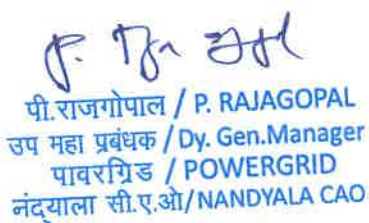 पी.राजगोपाल / P. RAJAGOPAL
उप महा प्रबंधक / Dy. Gen.Manager
पावरग्रिड / POWERGRID
नंदयाला सी.ए.ओ/NANDYALA CAO